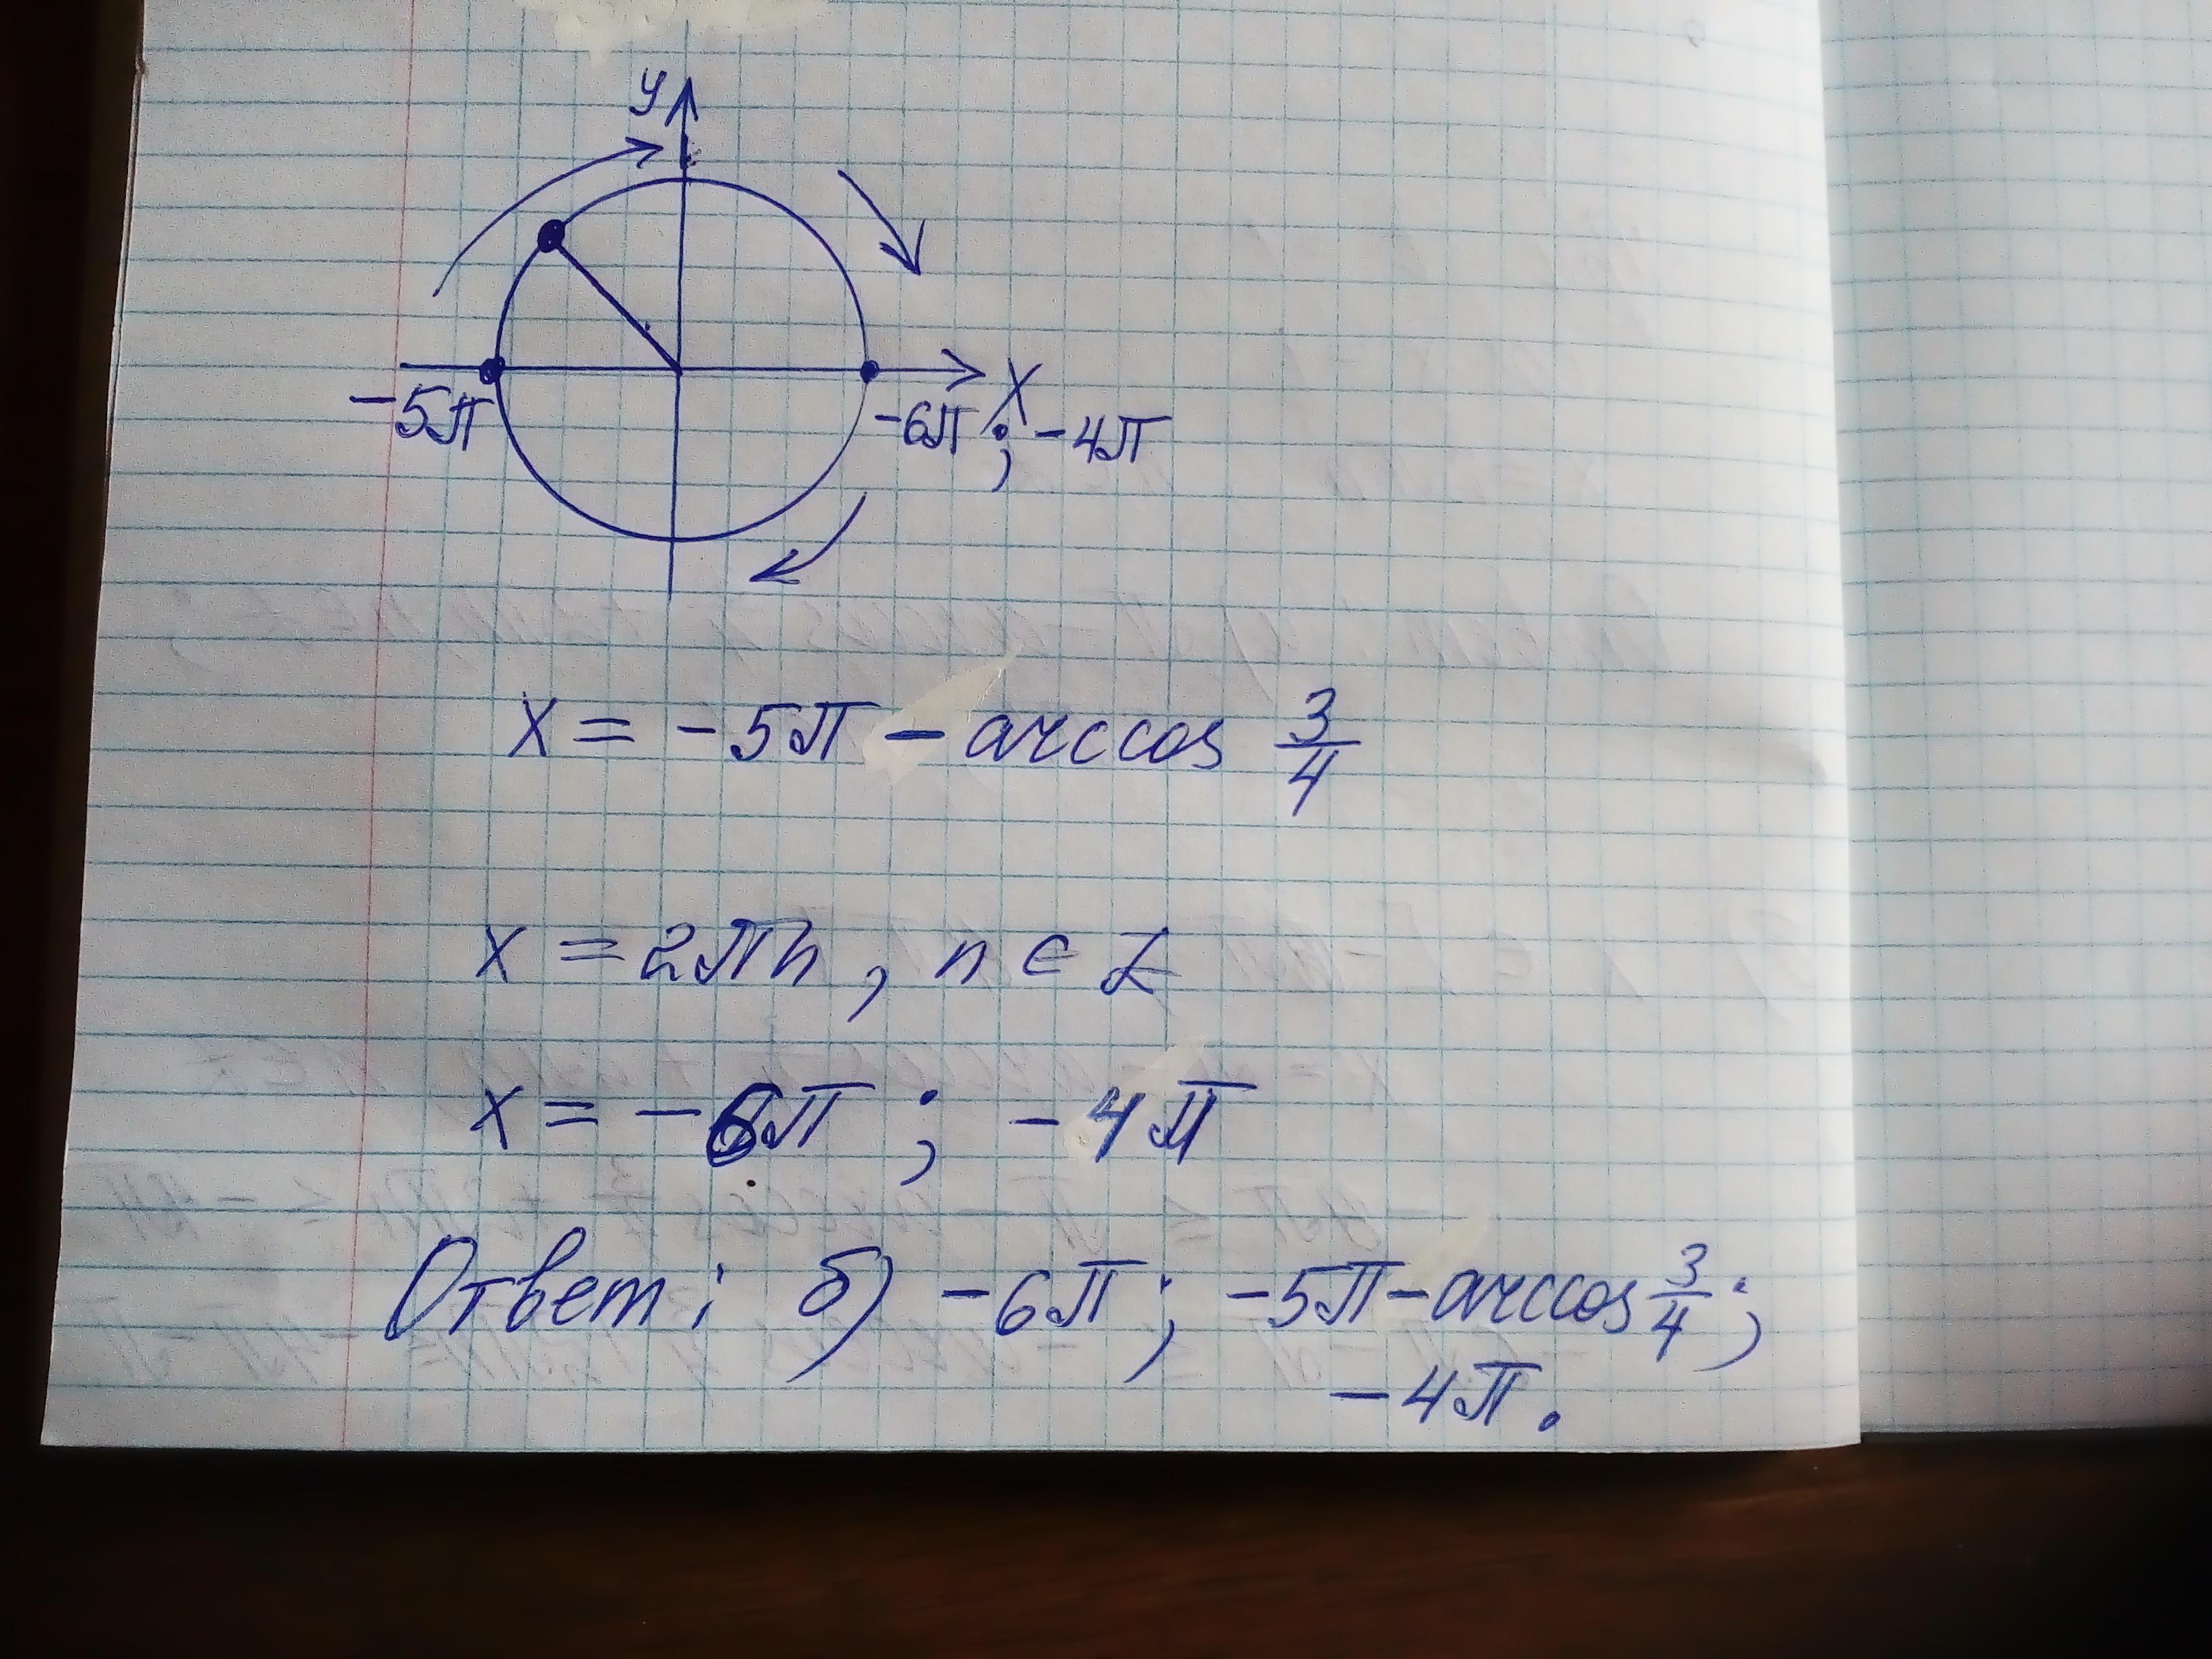 y
-5π
x
-6π; -4π
x = -5π - arccos 3/4
x = 2πn, n ∈ Z
x = -6π; -4π
Ответ: б) -6π; -5π - arccos 3/4;
-4π.